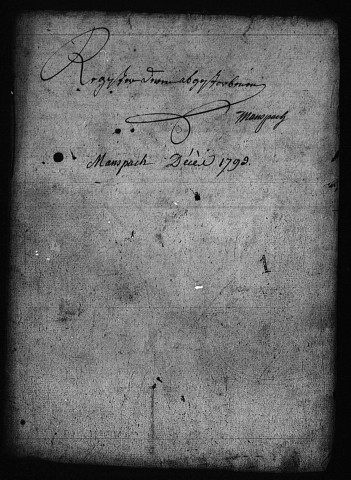 Regyster deren abgestorbenen
Manspach
Manspach Décès 1792.
1